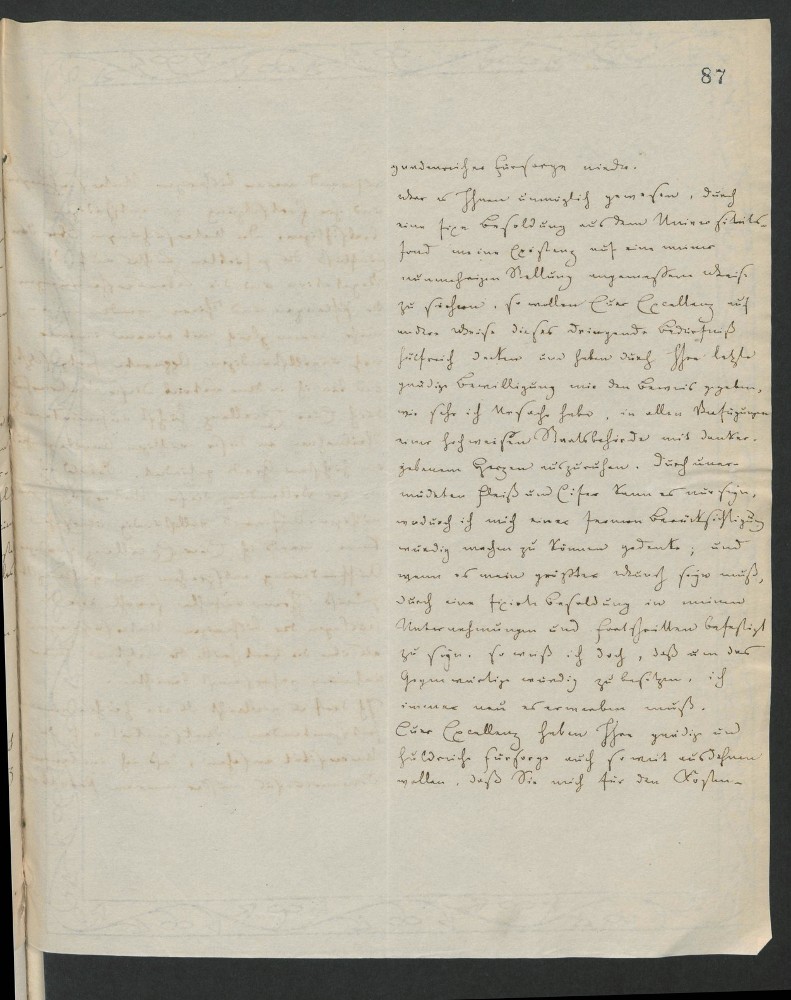 87
gnadenreicher Fürsorge nieder.
War es Ihnen unmöglich gewesen, durch
eine fixe Besoldung aus dem Universitäts-
fond meine Existenz auf eine meiner
nunmehrigen Stellung angemessene Weise
zu sichern, so wollen Euer Excellenz auf
andere Weise dieses dringende Bedürfniß
hülfreich decken und haben durch Ihre letzte
gnädige Bewilligung mir den Beweis gegeben,
wie sehr ich Ursache habe, in allen Verfügungen
einer hochweisen Staatsbehörde mit danker-
gebenem Herzen auszuruhen. Durch uner-
müdeten Fleiß und Eifer kann es nur seyn,
wodurch ich mich einer fernern Berücksichtigung
würdig machen zu können gedenke; und
wenn es mein größter Wunsch seyn muß,
durch eine fixirte Besoldung in meinen
Unternehmungen und Fortschritten befestigt
zu seyn, so weiß ich doch, daß um das
Gegenwärtige würdig zu besitzen, ich
immer neu es erwerben muß.
Euer Excellenz haben Ihre gnädige und
huldreiche Fürsorge auch so weit ausdehnen
wollen, daß Sie mich für den Kosten-